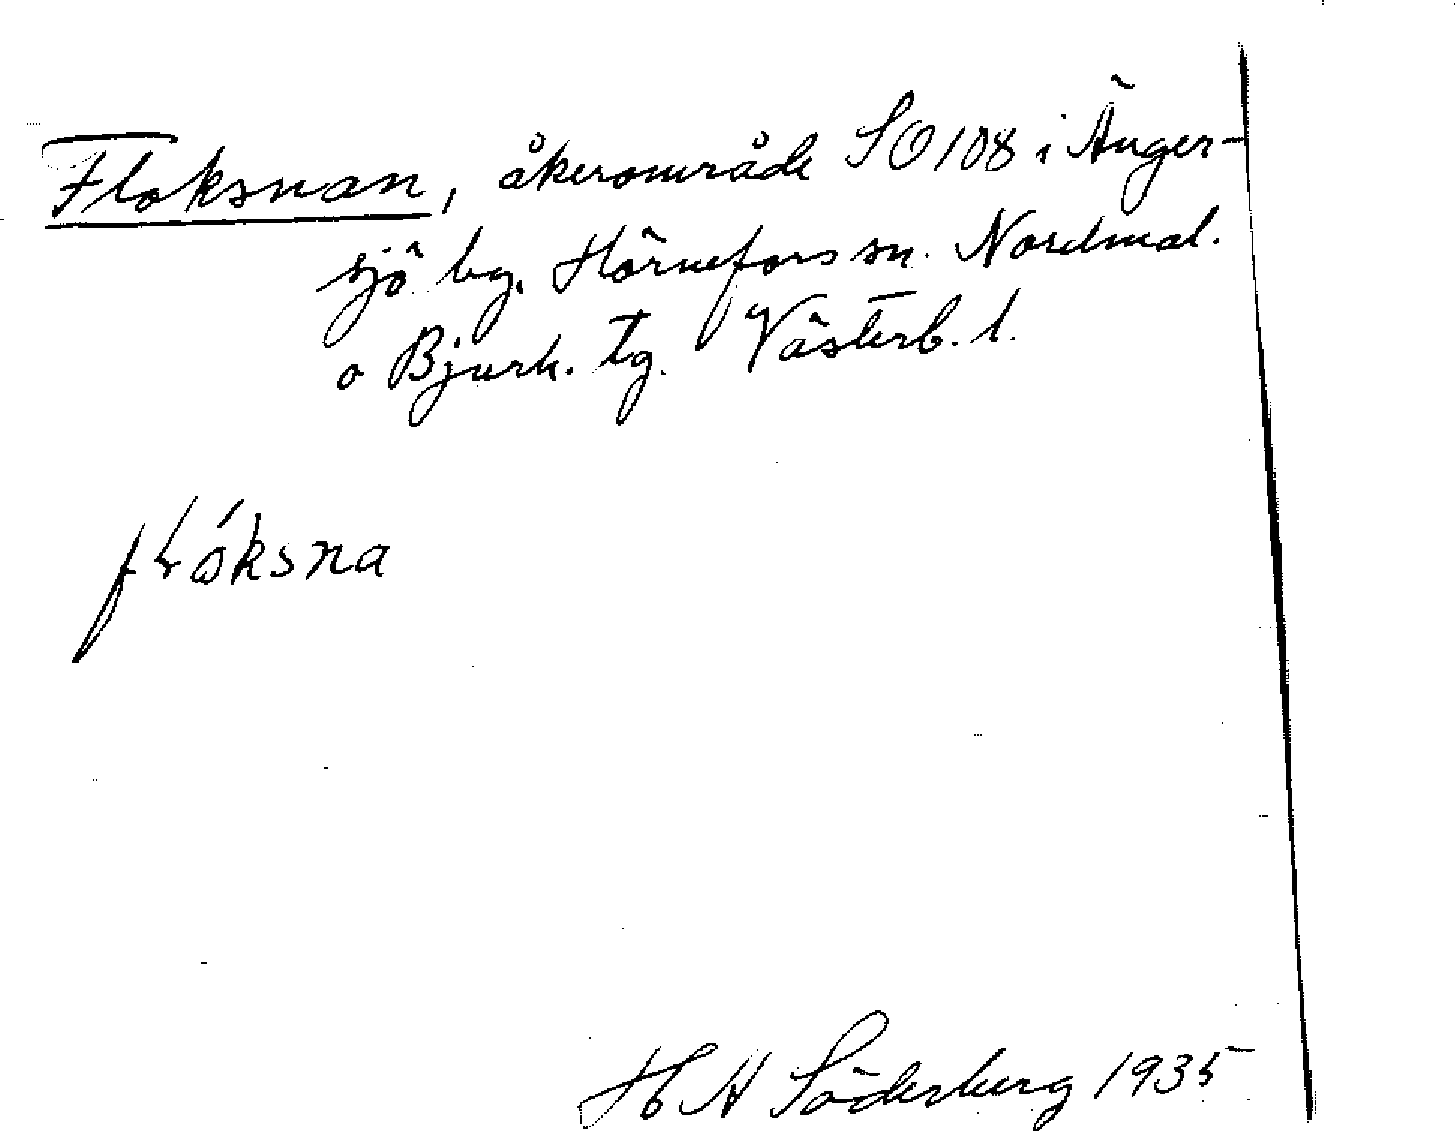 Floksnan, åkerområde SO108 i Änger-
sjö by. Hörnefors sn. Nordmal.
o Bjurh. tg. Västerb. l.
flóksna
H A Söderberg 1935